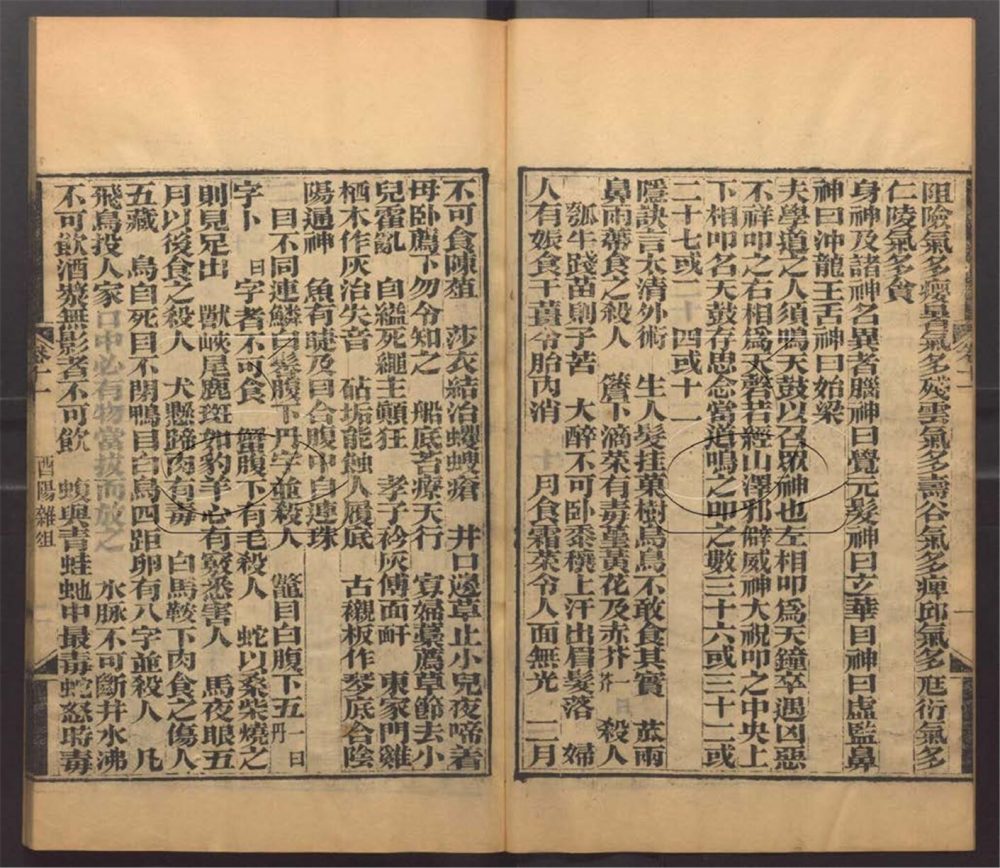 阻險氣多癭暑氣多殘雲氣多壽谷氣多痺邱氣多尩衍氣多
仁陵氣多貪
身神及諸神名異者腦神曰覺元髮神曰玄華目神曰虛監鼻
神曰沖龍王舌神曰始梁
夫學道之人須鳴天鼓以召眾神也左相叩為天鐘卒遇凶惡
不祥叩之右相為天磬若經山澤邪僻威神大祝叩之中央上
下相叩名天鼓存思念當道鳴之叩之數三十六或三十二或
二十七或二十四或十二
隱訣言太清外術 生人髮挂菓樹烏鳥不敢食其實 菰兩
鼻兩蔕食之殺人 簷下滴菜有毒堇黃花及赤芥 殺人
瓠牛踐苗則子苦 大醉不可臥黍穰上汗出眉髮落 婦
人有娠食干薑令胎內消 十月食霜菜令人面無光 三月
不可食陳葅 莎衣結治蠼螋瘡 井口邊草止小兒夜啼着
母臥薦下勿令知之 船底苔療天行 寡婦藁薦草節去小
兒霍亂 自縊死繩主顛狂 孝子衿灰傅面䵟 東家門雞
栖木作灰治失音 砧垢能蝕人履底 古襯板作琴底合陰
陽通神 魚有睫及目合腹中自連珠
二目不同連鱗白鬐腹下丹字並殺人 鼈目白腹下五一曰
丹
字卜 曰 字者不可食 蟹腹下有毛殺人 蛇以桑柴燒之
則見足出 獸岐尾鹿斑如豹羊心有竅悉害人 馬夜眼五
月以後食之殺人 犬懸蹄肉有毒 白馬鞍下肉食之傷人
五藏 烏自死目不閉鴨目白烏四距卵有八字並殺人 凡
飛鳥投人家口中必有物當拔而放之 水脉不可斷井水沸
不可飲酒漿無影者不可飲 蝮與青蛙虵中最毒蛇怒時毒
卷十一
酉陽雜俎